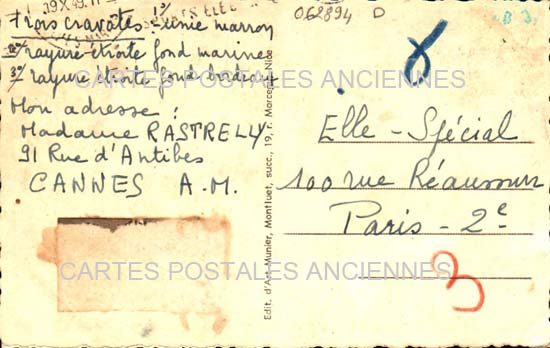 19X49
062894 D
B 3
trois cravates 1°/ unie marron
2°/ rayure étroite fond marine
3°/ rayure étroite fond bordeaux
Mon adresse :
Madame RASTRELLY
91 Rue d'Antibes
CANNES A.M.
Edit. d'Art Munier, Montluet, succ., 19, r. Marceau, Nice
Elle - Spécial
100 rue Réaumur
Paris - 2e
3
CARTES POSTALES ANCIENNES
CARTES POSTALES ANCIENNES